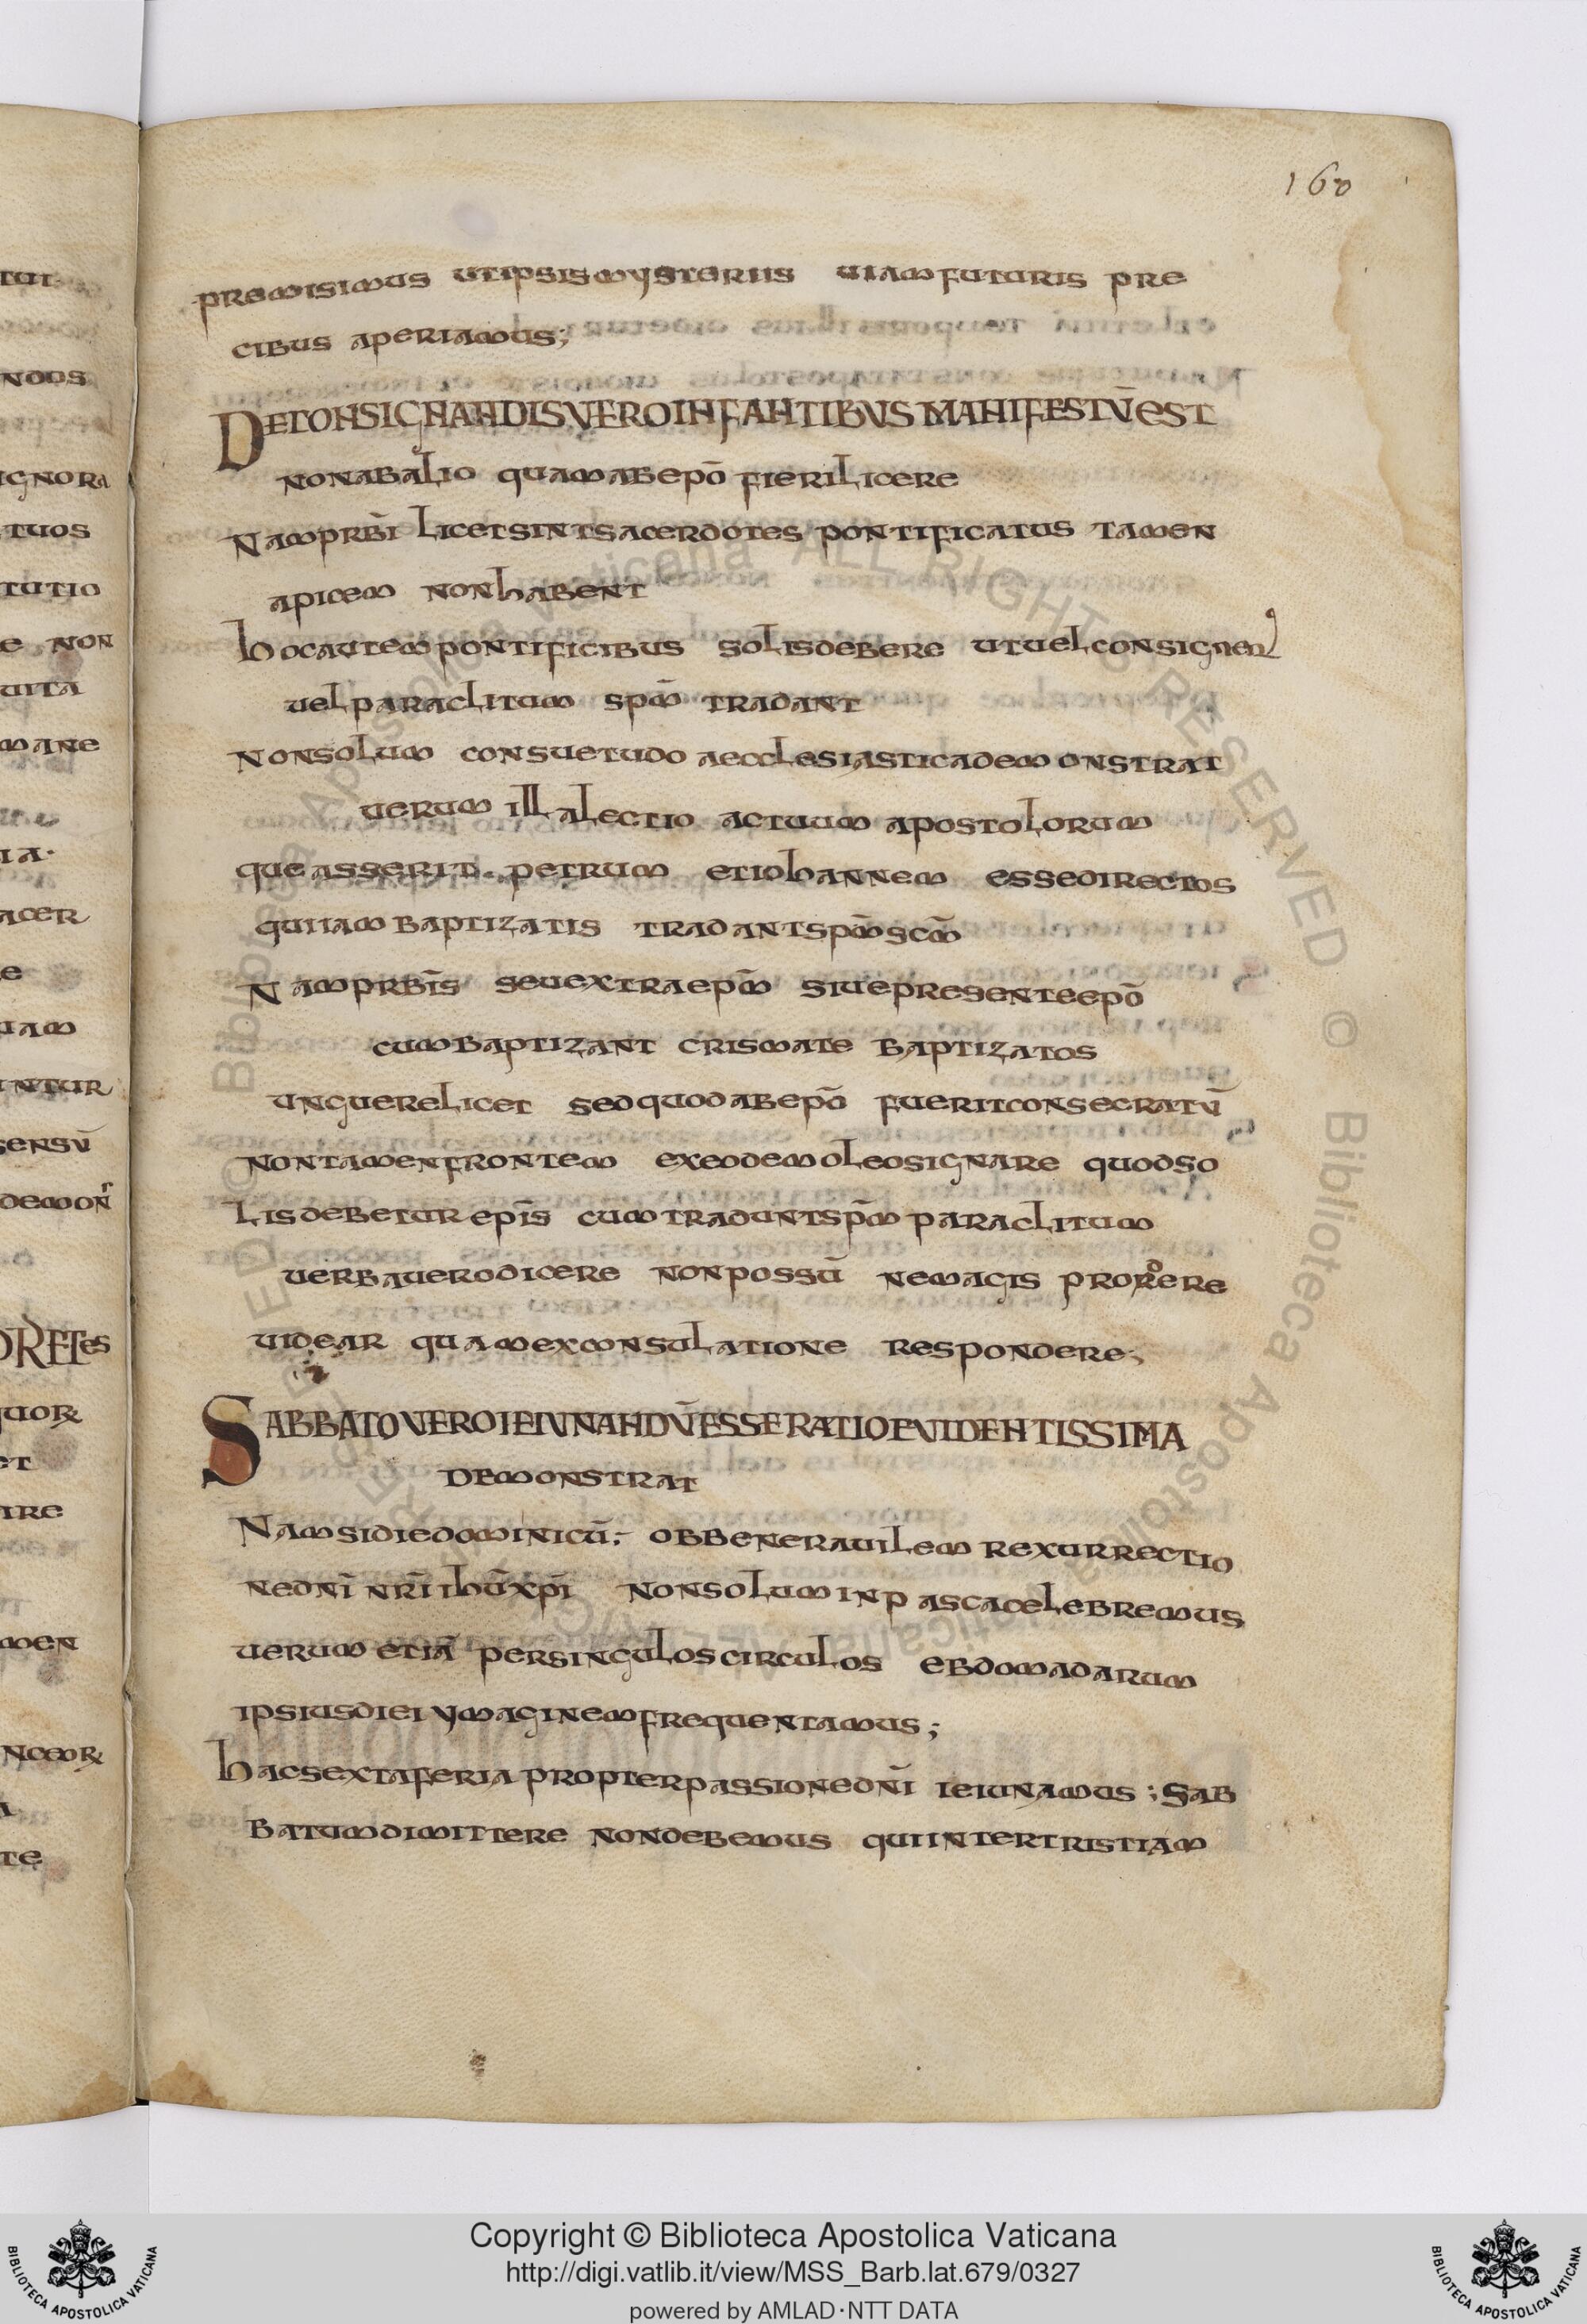 160
premisimus utipsismysteriis uiamfuturis pre
cibus aperiamus;
DECONSIGNANDISVEROINFANTIBVSMANIFESTV̄EST
nonabalio quamabepō fierilicere
Namprb̄i licetsintsacerdotes pontificatus tamen
apicem nonhabent
hocautempontificibus solisdebere utuelconsignen
uelparaclitum spm̄ tradant
Nonsolum consuetudo aecclesiasticademonstrat
uerum illalectio actuum apostolorum
queasserit. petrum etiohannem essedirectos
quiiambaptizatis tradantspm̄scm̄
Namprb̄is seuextraepm̄ siuepresenteepō
cumbaptizant crismate baptizatos
unguerelicet sedquodabepō fueritconsecratū
nontamenfrontem exeodemoleosignare quodso
lisdebeturepīs cumtraduntspm̄ paraclitum
uerbauerodicere nonpossū nemagis prorere
uidear quamexconsulatione respondere;
SABBATOVEROIEIVNANDV̄ESSERATIOEVIDENTISSIMA
demonstrat
Namsidiedominicū;- obbenerauilem rexurrectio
nednī nrī ihūxpī nonsoluminpascacelebremus
uerum etiā persinguloscirculos ebdomadarum
ipsiusdiei ymaginemfrequentamus;
hacsextaferiapropterpassionednī ieiunamus; sab
batumdimittere nondebemus quiintertristiam
Copyright © Biblioteca Apostolica Vaticana
http://digi.vatlib.it/view/MSS_Barb.lat.679/0327
powered by AMLAD·NTT DATA
BIBLIOTECA APOSTOLICA VATICANA
BIBLIOTECA APOSTOLICA VATICANA